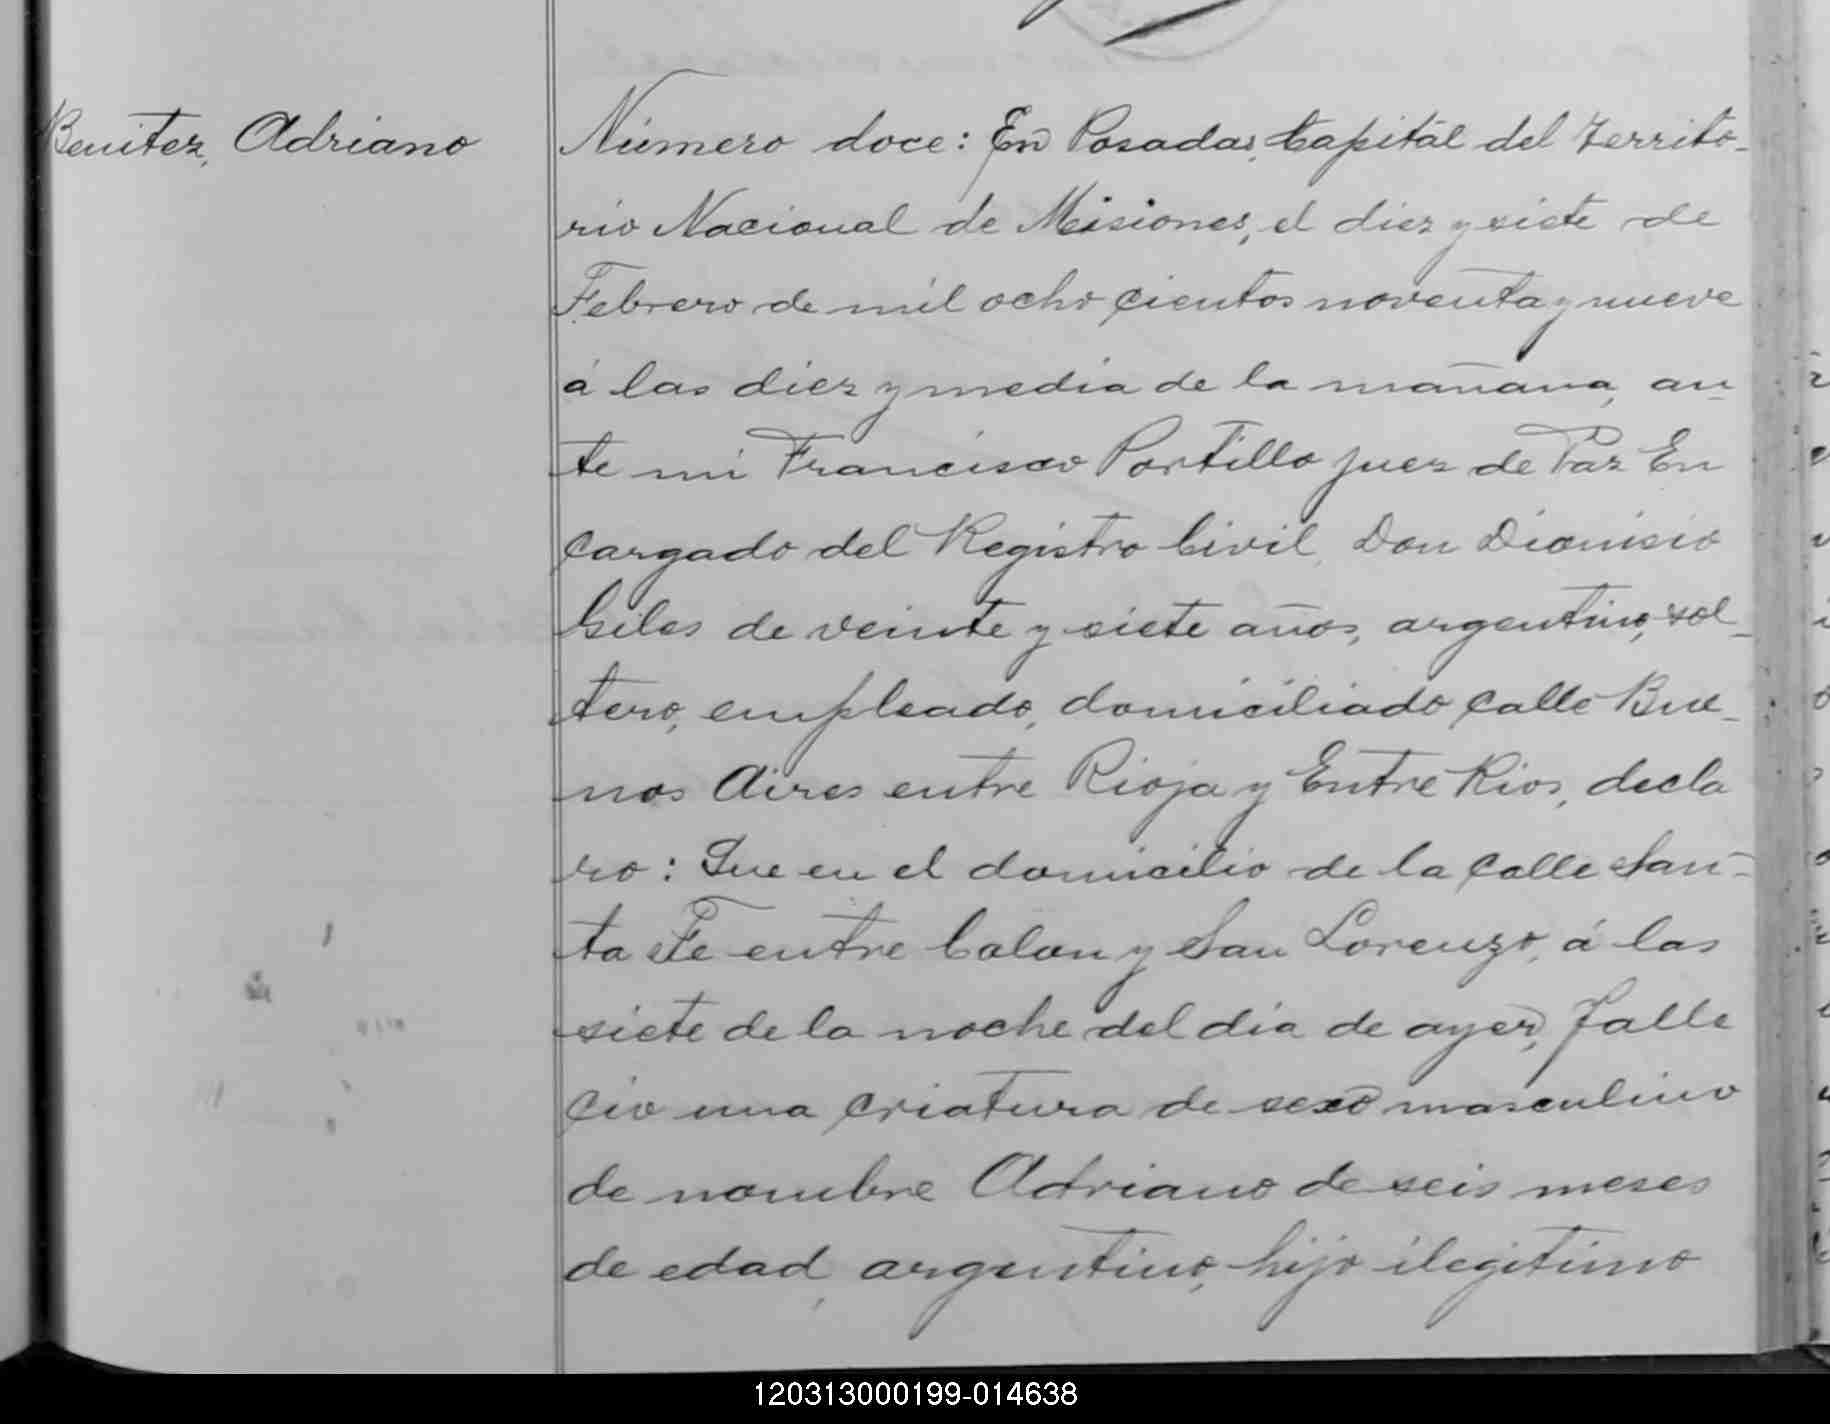 Benitez, Adriano
Número doce: En Posadas, Capital del Territo-
rio Nacional de Misiones, el diez y siete de
Febrero de mil ocho cientos noventa y nueve
á las diez y media de la mañana, an-
te mi Francisco Portillo juez de Paz En
cargado del Registro Civil, Don Dionisio
Giles de veinte y siete años, argentino, sol-
tero, empleado, domiciliado calle Bue-
nos Aires entre Rioja y Entre Rios, decla
ro: Que en el domicilio de la calle San-
ta Fe entre Colon y San Lorenzo, á las
siete de la noche del dia de ayer, falle
cio una criatura de sexo masculino
de nombre Adriano de seis meses
de edad, argentino, hijo ilegitimo
120313000199-014638